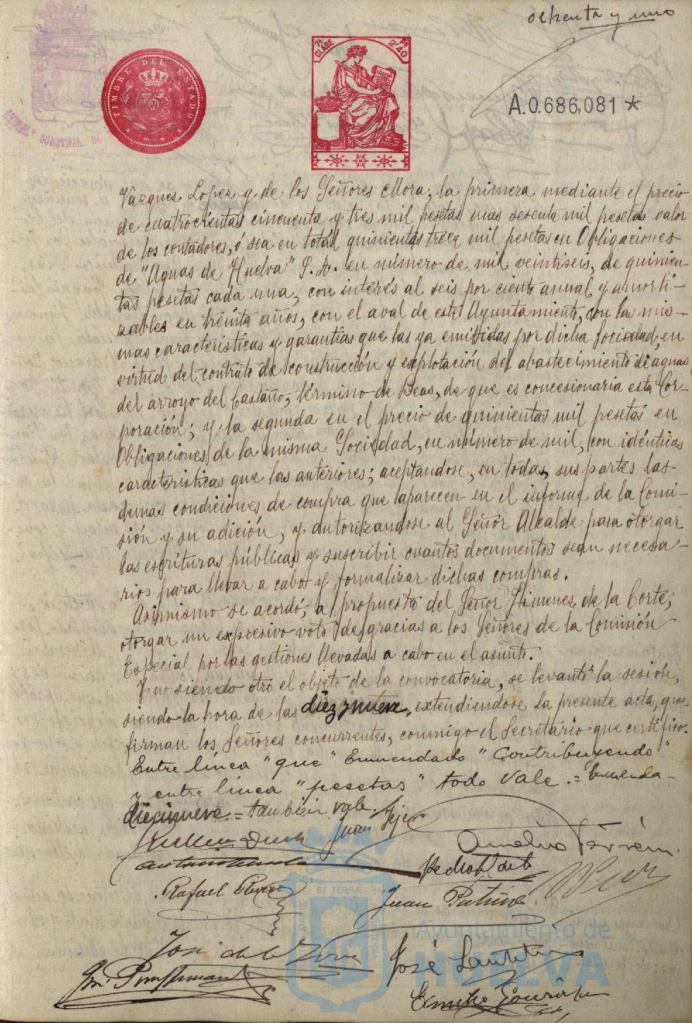 ochenta y uno
TIMBRE DEL ESTADO
7ª CLASE
Pts 2'40
A.0.686,081 *
Vázquez Lopez y de los Señores Mora; la primera mediante el precio
de cuatrocientas cincuenta y tres mil pesetas mas sesenta mil pesetas valor
de los contadores, ó sea en total quinientas trece mil pesetas en Obligaciones
de "Aguas de Huelva" S.A. en número de mil veintiseis, de quinien-
tas pesetas cada una, con interés al seis por ciento anual y amorti-
zables en treinta años, con el aval de este Ayuntamiento, con la mis-
mas características y garantias que las ya emitidas por dicha Sociedad, en
virtud del contrato de construcción y explotación del abastecimiento de aguas
del arroyo del Castaño, término de Beas, de que es concesionaria esta Cor-
poración; y la segunda en el precio de quinientas mil pesetas en
Obligaciones de la misma Sociedad, en número de mil, con idénticas
características que las anteriores; aceptandose, en todas sus partes las
demas condiciones de compra que aparecen en el informe de la Comi-
sión y su adición, y autorizandose al Señor Alcalde para otorgar
las escrituras públicas y suscribir cuantos documentos sean necesa-
rios para llevar a cabo y formalizar dichas compras.
Asimismo se acordó, a propuesta del Señor Jimenez de la Corte,
otorgar un expresivo voto de gracias a los Señores de la Comisión
Especial por las gestiones llevadas a cabo en el asunto.
Y no siendo otro el objeto de la convocatoria, se levantó la sesión,
siendo la hora de las diez y nueve, extendiendose la presente acta, que
firman los Señores concurrentes, conmigo el Secretario que certifico.
Entre línea "que" Enmendado "Contribuyendo"
y entre línea "pesetas" todo vale.= Enmenda-
diecinueve = también vale.
Juan
Aurelio
Rafael
Juan
José de la
José
Emilio
Ayuntamiento de
HUELVA